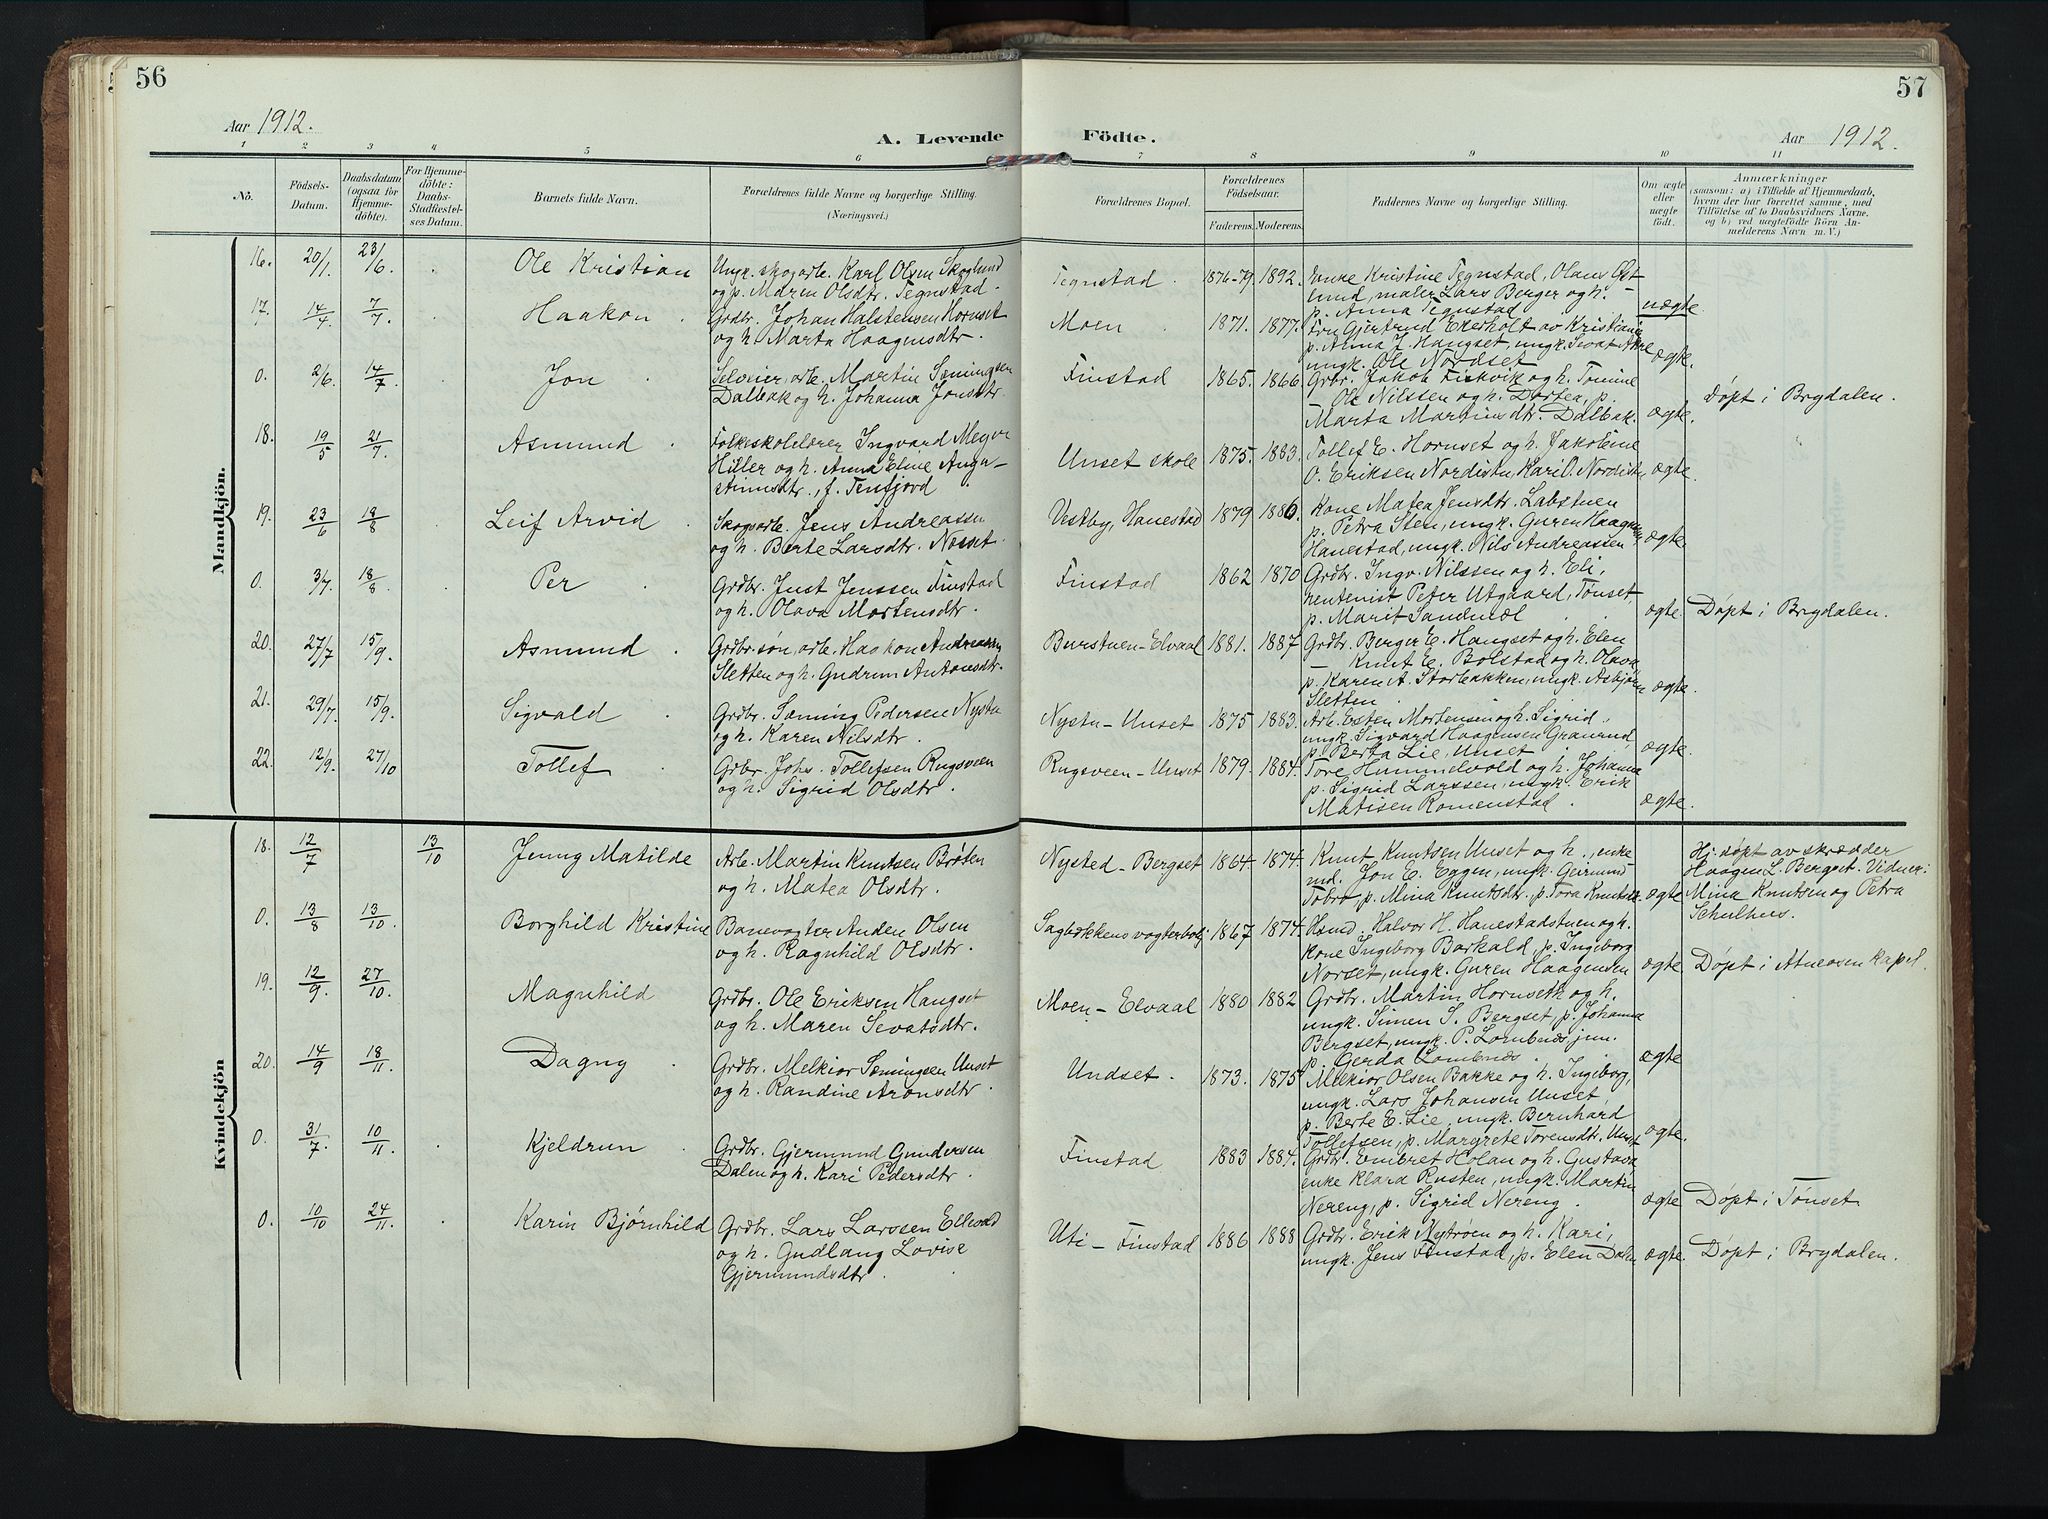 56
57
Aar 1912.
A. Levende Födte.
Aar 1912.
1 2 3 4 5 6 7 8 9 10 11
No.
Födsels-
Datum.
Daabsdatum
(ogsaa for
Hjemme-
döbte).
For Hjemme-
döbte:
Daabs-
Stadfæstel-
ses Datum.
Barnets fulde Navn.
Forældrenes fulde Navne og borgerlige Stilling.
(Næringsvei.)
Forældrenes Bopæl.
Forældrenes
Födselsaar.
Faderens. Moderens.
Faddernes Navne og borgerlige Stilling.
Om ægte
eller
uægte
födt.
Anmærkninger
(saasom: a) i Tilfælde af Hjemmedaab,
hvem der har forrettet samme, med
Tilföielse af to Daabsvidners Navne.
og b) ved uægtefödte Börn An-
melderens Navn m. V.)
Mandkjön.
16. 20/1. 23/6. Ole Kristian
Ungk. skogarb. Karl Olsen Skoglund
og p. Maren Olsdtr. Tegnstad.
Tegnstad. 1876-79. 1892.
Enke Kristine Tegnstad, Olaus Øst-
lund, maler Lars Berger og h.
p. Anna Tegnstad
uægte
17. 14/4. 7/7. Haakon
Grdbr. Johan Halstensen Hornset
og h. Marta Haagensdtr.
Moen 1871. 1877.
Fru Gjertrud Ekerholt av Kristiania
p. Anna J. Hangset, ungk. Sevat Akre
ungk. Ole Nordset
ægte.
0. 2/6. 14/7. Jon
Selveier, arb. Martin Sæmingsen
Dalbak og h. Johanna Jonsdtr.
Finstad 1865. 1866
Grbr. Jakob Fiskvik og h. Tomine
Ole Nilssen og h. Dortea, p.
Marta Martinsdtr. Dalbak.
ægte.
Døpt i Brydalen.
18. 19/5 21/7. Asmund
Folkeskolelærer Ingvard Meyer
Hiller og h. Anna Eline Augu-
stinusdtr., f. Tenfjord
Unset skole 1875. 1883.
Tollef E. Hornset og h. Jakobine
O. Eriksen Nordistu, Kari O. Nordistu
ægte.
19. 23/6 18/8 Leif Arvid
Skogsarb. Jens Andreassen
og h. Berte Larsdtr. Næsset.
Vestby, Hanestad 1879 1886.
Kone Matea Jensdtr. Labstuen
p. Petra Sten, ungk. Guren Haagensen
Hanestad, ungk. Nils Andreassen
ægte.
0. 3/7. 18/8 Per
Grdbr. Just Jenssen Finstad
og h. Olava Mortensdtr.
Finstad 1862 1870
Grdbr. Ingv. Nilssen og h. Eli,
rentenist Peter Utgaard, Tønset,
p. Marit Sandmæl
ægte
Døpt i Brydalen.
20. 27/7 15/9. Asmund
Grdbr.søn, arb. Haakon Andreassen
Sletten og h. Gudrun Antonsdtr.
Burstuen-Elvaal 1881. 1887
Grdbr. Berger E. Hangset og h. Elen
Knut E. Bolstad og h. Olava
p. Karen A. Storbakken, ungk. Asbjørn
Sletten
ægte.
21. 29/7. 15/9. Sigvald
Grdbr. Sæming Pedersen Nystu
og h. Karen Nilsdtr.
Nystu-Unset 1875 1883.
Arb. Esten Mortensen og h. Sigrid,
ungk. Sigvard Haagensen Graurud,
p. Berta Lie, Unset
ægte.
22. 12/9. 27/10 Tollef
Grdbr. Johs. Tollefsen Rugsveen
og h. Sigrid Olsdtr.
Rugsveen-Unset 1879. 1884.
Tore Hummelvold og h. Johanna
p. Sigrid Larssen, ungk. Erik
Matisen Romenstad.
ægte.
Kvindekjön
18. 12/7 13/10 Jenny Matilde
Arb. Martin Knutsen Brøten
og h. Matea Olsdtr.
Nysted-Bergset 1864. 1874.
Knut Knutsen Unset og h., enke-
md. Jon E. Eggen, ungk. Geirmund
Tobro p. Mina Knutsdtr. p. Tora Knutsdtr.
ægte
Hj. døpt av skrædder
Haagen L. Bergset. Vidner:
Mina Knutsen og Petra
Schulhus.
0. 13/8 13/10. Borghild Kristine
Banevogter Anden Olsen
og h. Ragnhild Olsdtr.
Sagbækkens vogterbolig 1867 1874.
Hsmd. Halvor H. Hanestadstuen og h.
kone Ingeborg Barkald, p. Ingeborg
Norset, ungk. Guren Haagensen
ægte
Døpt i Atneosen kapel.
19. 12/9. 27/10. Magnhild
Grdbr. Ole Eriksen Hangset
og h. Maren Sevatsdtr.
Moen-Elvaal 1880 1882
Grdbr. Martin Hornseth og h.
ungk. Simen S. Bergset, p. Johanna
Bergset, ungk. P. Lombnæs jun.
p. Gerda Lombnæs.
ægte
20. 14/9 18/11. Dagny
Grdbr. Melkior Sæmingsen Unset
og h. Randine Aronsdtr.
Undset. 1873. 1875
Melkior Olsen Bakke og h. Ingeborg,
ungk. Lars Johansen Unset,
p. Berte E. Lie, ungk. Bernhard
Tollefsen, p. Margrete Toresdtr. Unset
ægte.
0. 31/7. 10/11. Kjeldrun
Grdbr. Gjermund Gundersen
Dalen og h. Kari Pedersdtr.
Finstad 1883 1884.
Grdbr. Embret Holan og h. Gustava
enke Klara Rusten, ungk. Martin
Nereng, p. Sigrid Nereng.
ægte
Døpt i Tønset.
0. 10/10 24/11. Karin Bjørnhild
Grdbr. Lars Larssen Ellevold
og h. Gudlaug Lovise
Gjermundsdtr.
Uti-Finstad 1886 1888
Grdbr. Erik Nytrøen og h. Kari,
ungk. Jens Finstad, p. Elen Dalen
ægte.
Døpt i Brydalen.